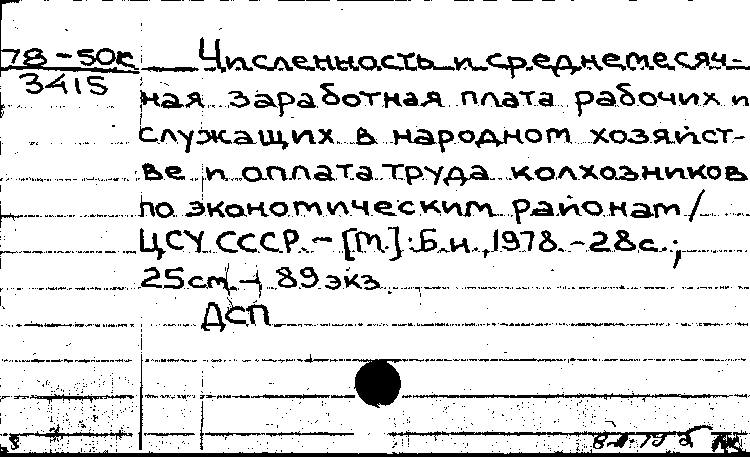 78-50к Численность и среднемесяч-
3415
ная заработная плата рабочих и
служащих в народном хозяйст-
ве и оплата труда колхозников
по экономическим районам/
ЦСУ СССР. – [М.]: Б.и., 1978. – 28с.;
25см – 89 экз.
ДСП